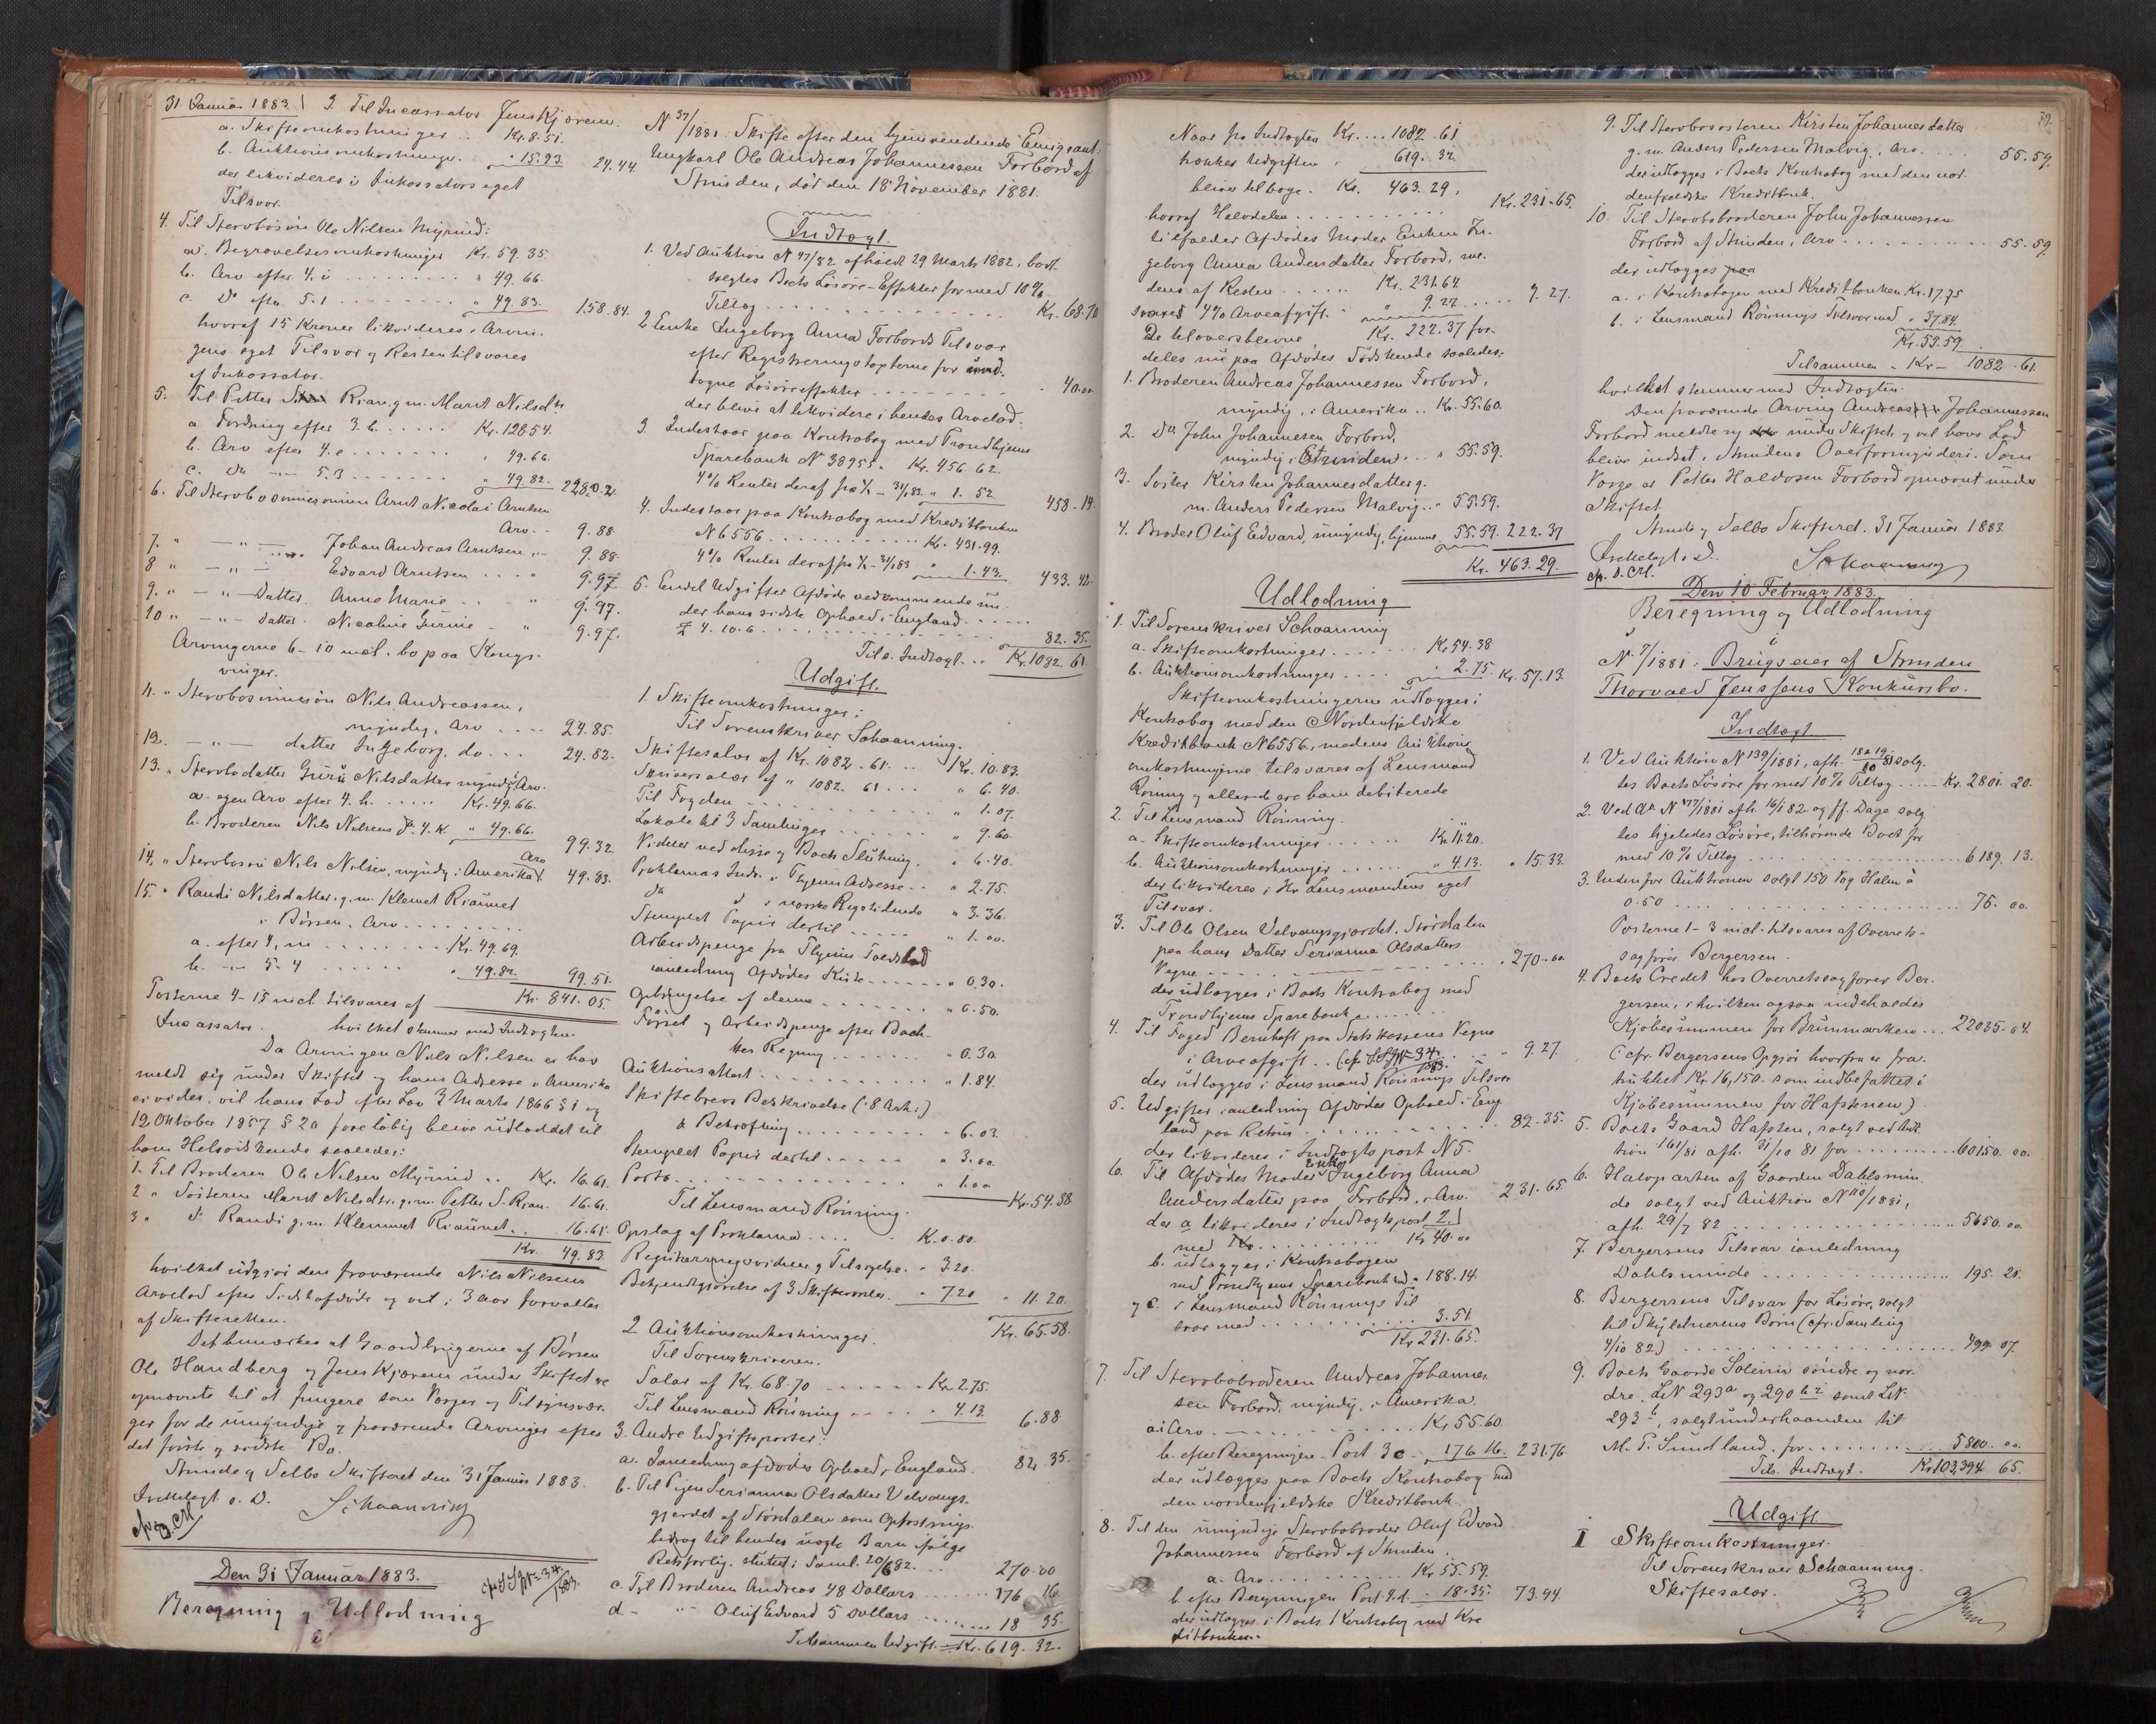 31. Januar 1883.
3. Til Incassator Jens Kjørem.
a. Skifteomkostninger .. Kr. 8.51.
b. Auktionsomkostninger. " 15.93. 24.44.
der likvideres i Inkassators eget
Tilsvar.
4. Til Stervbosøn Ole Nilsen Myrind:
a. Begravelsesomkostninger Kr. 59.35.
b. Arv efter 4. i ........ " 49.66.
c. Do efter 5.1 ........ " 49.83. 158.84.
hvoraf 15 Kroner likvideres i Arvin-
gens eget Tilsvar og Resten tilsvares
af Inkassator.
5. Til Petter Rian, g.m. Marit Nilsdtr
a Fordring efter 3. b. ..... Kr. 128.54.
b. Arv efter 4. e ....... " 49.66.
c. Do — " — 5.3 ....... " 49.82. 228.02.
6. Til Stervbosønnesønnen Arnt Nicolai Arntsen
Arv .. 9.88.
7. " — " — Johan Andreas Arntsen, .. 9.88.
8 " — " — Edvard Arntsen .... " 9.97.
9. " — " — Datter Anne Marie .. " 9.97.
10 " — " — datter. Nicoline Gurine - " 9.97.
Arvingerne 6-10 incl. bo paa Kongs-
vinger.
11. " Stervbosønnesøn Nils Andreassen,
myndig, Arv .... 24.85.
12. — " — datter Ingeborg, do ... 24.82.
13. " Stervbodatter Guru Nilsdatter myndig Arv.
a. egen Arv efter 4. h. ..... Kr. 49.66.
b. Broderen Nils Nilsens Do 4. K. " 49.66. 99.32
14. " Stervbosøn Nils Nilsen, myndig i Amerika Arv 49.83.
15. " Randi Nilsdatter. g.m. Klemet Riaunet
i Børsen, Arv ........
a. efter 4, m ........ Kr. 49.69.
b. — " 5. 4 ...... " 49.82. 99.51.
Posterne 4-15 incl. tilsvares af Kr. 841.05.
Incassator. hvilket stemmer med Indtægten.
Da Arvingen Nils Nilsen ei har
meldt sig under Skiftet og hans Adresse i Amerika
ei vides, vil hans Lod efter Lov 3 Marts 1866 § 1 og
12 Oktober 1857 § 20 foreløbig blive udloddet til
hans Helsødskende saaledes:
1. Til Broderen Ole Nilsen Myrind .. Kr. 16.61.
2 " Søsteren Marit Nilsdtr. g.m. Petter S. Rian. 16.61.
3 " D. Randi g.m. Klemmet Riaunet .. 16.61.
Kr. 49.83.
hvilket udgjør den fraværende Nils Nilsens
Arvelod efter Sidstafdøde og vil i 3 aar forvaltes
af Skifteretten.
Det bemærkes at Gaardbrugerne af Børsen
Ole Handberg og Jens Kjørem under Skiftet er
opnævnte til at fungere som Værger og Tilsynsvær-
ger for de umyndige og fraværende Arvinger efter
det første og sidste Bo.
Strinde og Selbo Skifteret den 31 Januar 1883.
Indlagt s. D. Schaanning
Den 31 Januar 1883.
cfr S.S. Nr. 34/1883.
Beregning og Udlodning
i
N 37/1881. Skifte efter den hjemvendende Emigrant
Ungkarl Ole Andreas Johannessen Forbord af
Strinden, død den 18 November 1881.
Indtægt.
1. Ved Auktion N 47/82 afholdt 29 Marts 1882, bort-
solgtes Boets Løsøre-Effekter for med 10%
Tillæg .............. Kr. 68.70
2. Enke Ingeborg Anna Forbords Tilsvar
efter Registreringstaxterne for und-
tagne Løsøreeffekter ........ " 40.00
der blive at likvidere i hendes Arvelod.
3. Indestaar paa Kontrabog med Trondhjems
Sparebank N 38955. Kr. 456.62.
4% Renter deraf fra 1/1 - 31/1 83. " 1.52. 458.14.
4. Indestaar paa Kontrabog med Kreditbanken
N 6556 ............ Kr. 431.99.
4% Renter deraf fra 1/1 - 31/1 83 " 1.43. 433.42.
5. Endel Udgifter Afdøde vedkommende un-
der hans sidste Ophold i England .....
£ 4.10.6 .............. 82.35.
Tils. Indtægt ... Kr. 1082.61.
Udgift.
1. Skifteomkostninger:
Til Sorenskriver Schaanning.
Skiftesalær af Kr. 1082.61. .. Kr. 10.83.
Skriversalær af " 1082.61 ... " 6.40.
Til Fogden .......... " 1.07.
Lokale til 3 Samlinger ...... " 9.60.
Vidner ved disse og Boets Slutning. " 6.40.
Proklamas Indr. i Thjems Adresse .. " 2.75.
do i norske Rigstidende " 3.36.
Stemplet Papir dertil ..... " 1.00.
Arbeidspenge fra Thjems Toldbod
ianledning Afdødes Kiste ...... " 0.30.
Opbringelse af denne ........ " 0.50.
Førsel og Arbeidspenge efter Bach-
kes Regning ....... " 0.30
Auktionsattest ........ " 1.84.
Skiftebrevs Beskrivelse (8 Ark:)
& Bekræftning ........ " 6.03.
Stemplet Papir dertil ..... " 3.00.
Porto ............ " 1.00 Kr. 54.38
Til Lensmand Rønning.
Opslag af Proklama .... K. 0.80.
Registreringsvidner og Tilsigelse. " 3.20.
Bekjendtgjørelse af 3 Skiftesamler. " 7.20 " 11.20.
Kr. 65.58.
2 Auktionsomkostninger.
Til Sorenskriveren.
Salær af Kr. 68.70 ...... Kr. 2.75.
Til Lensmand Rønning .... " 4.13. 6.88
3. Andre Udgiftsposter:
a. Ianledning afdødes Ophold i England. 82.35.
b. Til Pigen Serianna Olsdatter Velvangs-
gjerdet af Stjørdalen som Opfostrings-
bidrag til hendes uægte Barn ifølge
Retsforlig. sluttet i Saml. 20/6 82. ... 270.00
c. Til Broderen Andreas 48 Dollars ...... 176 16
d - " Oluf Edvard 5 Dollars ...... 18 35.
Tilsammen Udgift Kr. 619.32.
79.
Naar fra Indtægten Kr. .... 1082.61
trækkes Udgiften " 619.32.
bliver tilbage. Kr. 463.29.
hvoraf Halvdelen ........... Kr. 231.65.
tilfalder Afdødes Moder Enken In-
geborg Anna Andersdatter Forbord, me-
dens af Resten ...... Kr. 231.64
svares 4% Arveafgift. " 9.27 ..... 9.27.
De tiloversblevne Kr. 222.37 for-
deles nu paa Afdødes Sødskende saaledes:
1. Broderen Andreas Johannessen Forbord,
myndig, i Amerika .. Kr. 55.60.
2. Do John Johannesen Forbord,
myndig i Strinden ... " 55.59.
3. Søster Kirsten Johannesdatter g.
m. Anders Pedersen Malvig .. " 55.59.
4. Broder Oluf Edvard, umyndig, hjemme 55.59. 222.37
Kr. 463.29.
Udlodning
1. Til Sorenskriver Schaanning
a. Skifteomkostninger ....... Kr. 54.38
b. Auktionsomkostninger .... " 2.75. Kr. 57.13.
Skifteomkostningerne udlægges i
Kontrabog med den Nordenfjeldske
Kreditbank N 6556, medens Auktions
omkostningerne tilsvares af Lensmand
Rønning og allerede ere ham debiterede
2. Til Lensmand Rønning.
a. Skifteomkostninger ...... Kr. 11.20.
b. Auktionsomkostninger ..... " 4.13. " 15.33.
der likvideres i Hr Lensmandens eget
Tilsvar.
3. Til Ole Olsen Velvangsgjerdet, Stjørdalen
paa hans Datter Serianna Olsdatters
Vegne ............ " 270.00
der udlægges i Boets Kontrabog med
Trondhjems Sparebank.
4. Til Foged Bernhoft paa Statskassens Vegne
i Arveafgift .. (cfr S.S. Nr. 34/1883. .. 9.27.
der udlægges i Lensmand Rønnings Tilsvar
5. Udgifter ianledning Afdødes Ophold i Eng-
land paa Retour ............ 82.35.
der likvideres i Indtægtspost N 5.
6. Til Afdødes Moder Enke Ingeborg Anna
Andersdatter paa Forbord, i Arv. 231.65
der a likvideres i Indtægtspost 2.
med .......... Kr 40.00
b. udlægges i Kontrabogen
med Trondhjems Sparebank med " 188.14.
og c. i Lensmand Rønnings Til-
svar med ............ 3.51
Kr. 231.65.
7. Til Stervbobroderen Andreas Johannes-
sen Forbord, myndig, i Amerika
a. Arv ............ Kr. 55.60
b. efter Beregningen Post 3 c - 176.16. 231.76.
der udlægges paa Boets Kontrabog med
den nordenfjeldske Kreditbank.
8. Til den umyndige Stervbobroder Oluf Edvard
Johannessen Forbord af Strinden.
a. Arv ........... Kr. 55.59.
b. efter Beregningen Post 3. d. - 18.35. 73.94.
der udlægges i Boets Kontrabog med Kre-
ditbanken.
9. Til Stervbosøsteren Kirsten Johannesdatter
g.m. Anders Pedersen Malvig, Arv ..... 55.59.
der udlægges i Boets Kontrabog med den nor-
denfjeldske Kreditbank.
10. Til Stervbobroderen John Johannessen
Forbord af Strinden, Arv .......... 55.59.
der udlægges paa
a. i Kontrabogen med Kreditbanken Kr. 17.75
b. i Lensmand Rønnings Tilsvar med " 37.84.
Kr. 55.59.
Tilsammen - Kr. - 1082.61.
hvilket stemmer med Indtægten.
Den fraværende Arving Andreas Johannessen
Forbord meldte sig under Skiftet, og vil hans Lod
blive indsat i Strindens Overformynderi. Som
Værge er Petter Halvorsen Forbord opnævnt under
Skiftet.
Strinde og Selbo Skifteret. 31 Januar 1883.
Indlagt s. D. Schaanning
Den 10 Februar 1883.
Beregning og Udlodning
i
N. 7/1881. Brugseier af Strinden
Thorvald Jenssens Konkursbo.
Indtægt
1. Ved Auktion N 139/1881, afh. 18 & 19/10 81 solg-
tes Boets Løsøre for med 10% Tillæg .... Kr. 2801.20.
2. Ved do N 177/1881 afh. 16/1 82 og ff. Dage solg-
tes ligeledes Løsøre, tilhørende Boet for
med 10% Tillæg ................ 6189.13.
3. Udenfor Auktionen solgt 150 Vog Halm à
0.50 .................... 75.00.
Posterne 1-3 incl. tilsvares af Overrets-
sagfører Bergersen.
4. Boets Credit hos Overretssagfører Ber-
gersen, i hvilken ogsaa indeholdes
Kjøbesummen for Brunmarken ... 22035.64.
(cfr. Bergersens Opgjør hvorfra er fra-
trukket Kr. 16,150. som indbefattet i
Kjøbesummen for Hafsten)
5. Boets Gaard Hafsten, solgt ved Auk-
tion 161/81 afh. 31/10 81 for ......... 60150.00.
6. Halvparten af Gaarden Dahlsmin-
de solgt ved Auktion N 110/1881,
afh. 29/7 82 .................. 5650.00
7. Bergersens Tilsvar ianledning
Dahlsminde ................ 195.20.
8. Bergersens Tilsvar for Løsøre, solgt
til Skyldnerens Børn (cfr. Samling
4/10 82) ................ 499.07.
9. Boets Gaarde Solem søndre og nor-
dre. LN 293a og 290 b 2 samt LN.
293 b, solgt underhaanden til
M. P. Sundland for ........ 5800.00
Tils. Indtægt. Kr. 103,394.65.
Udgift
I Skifteomkostninger.
Til Sorenskriver Schaanning.
Skiftesalær.